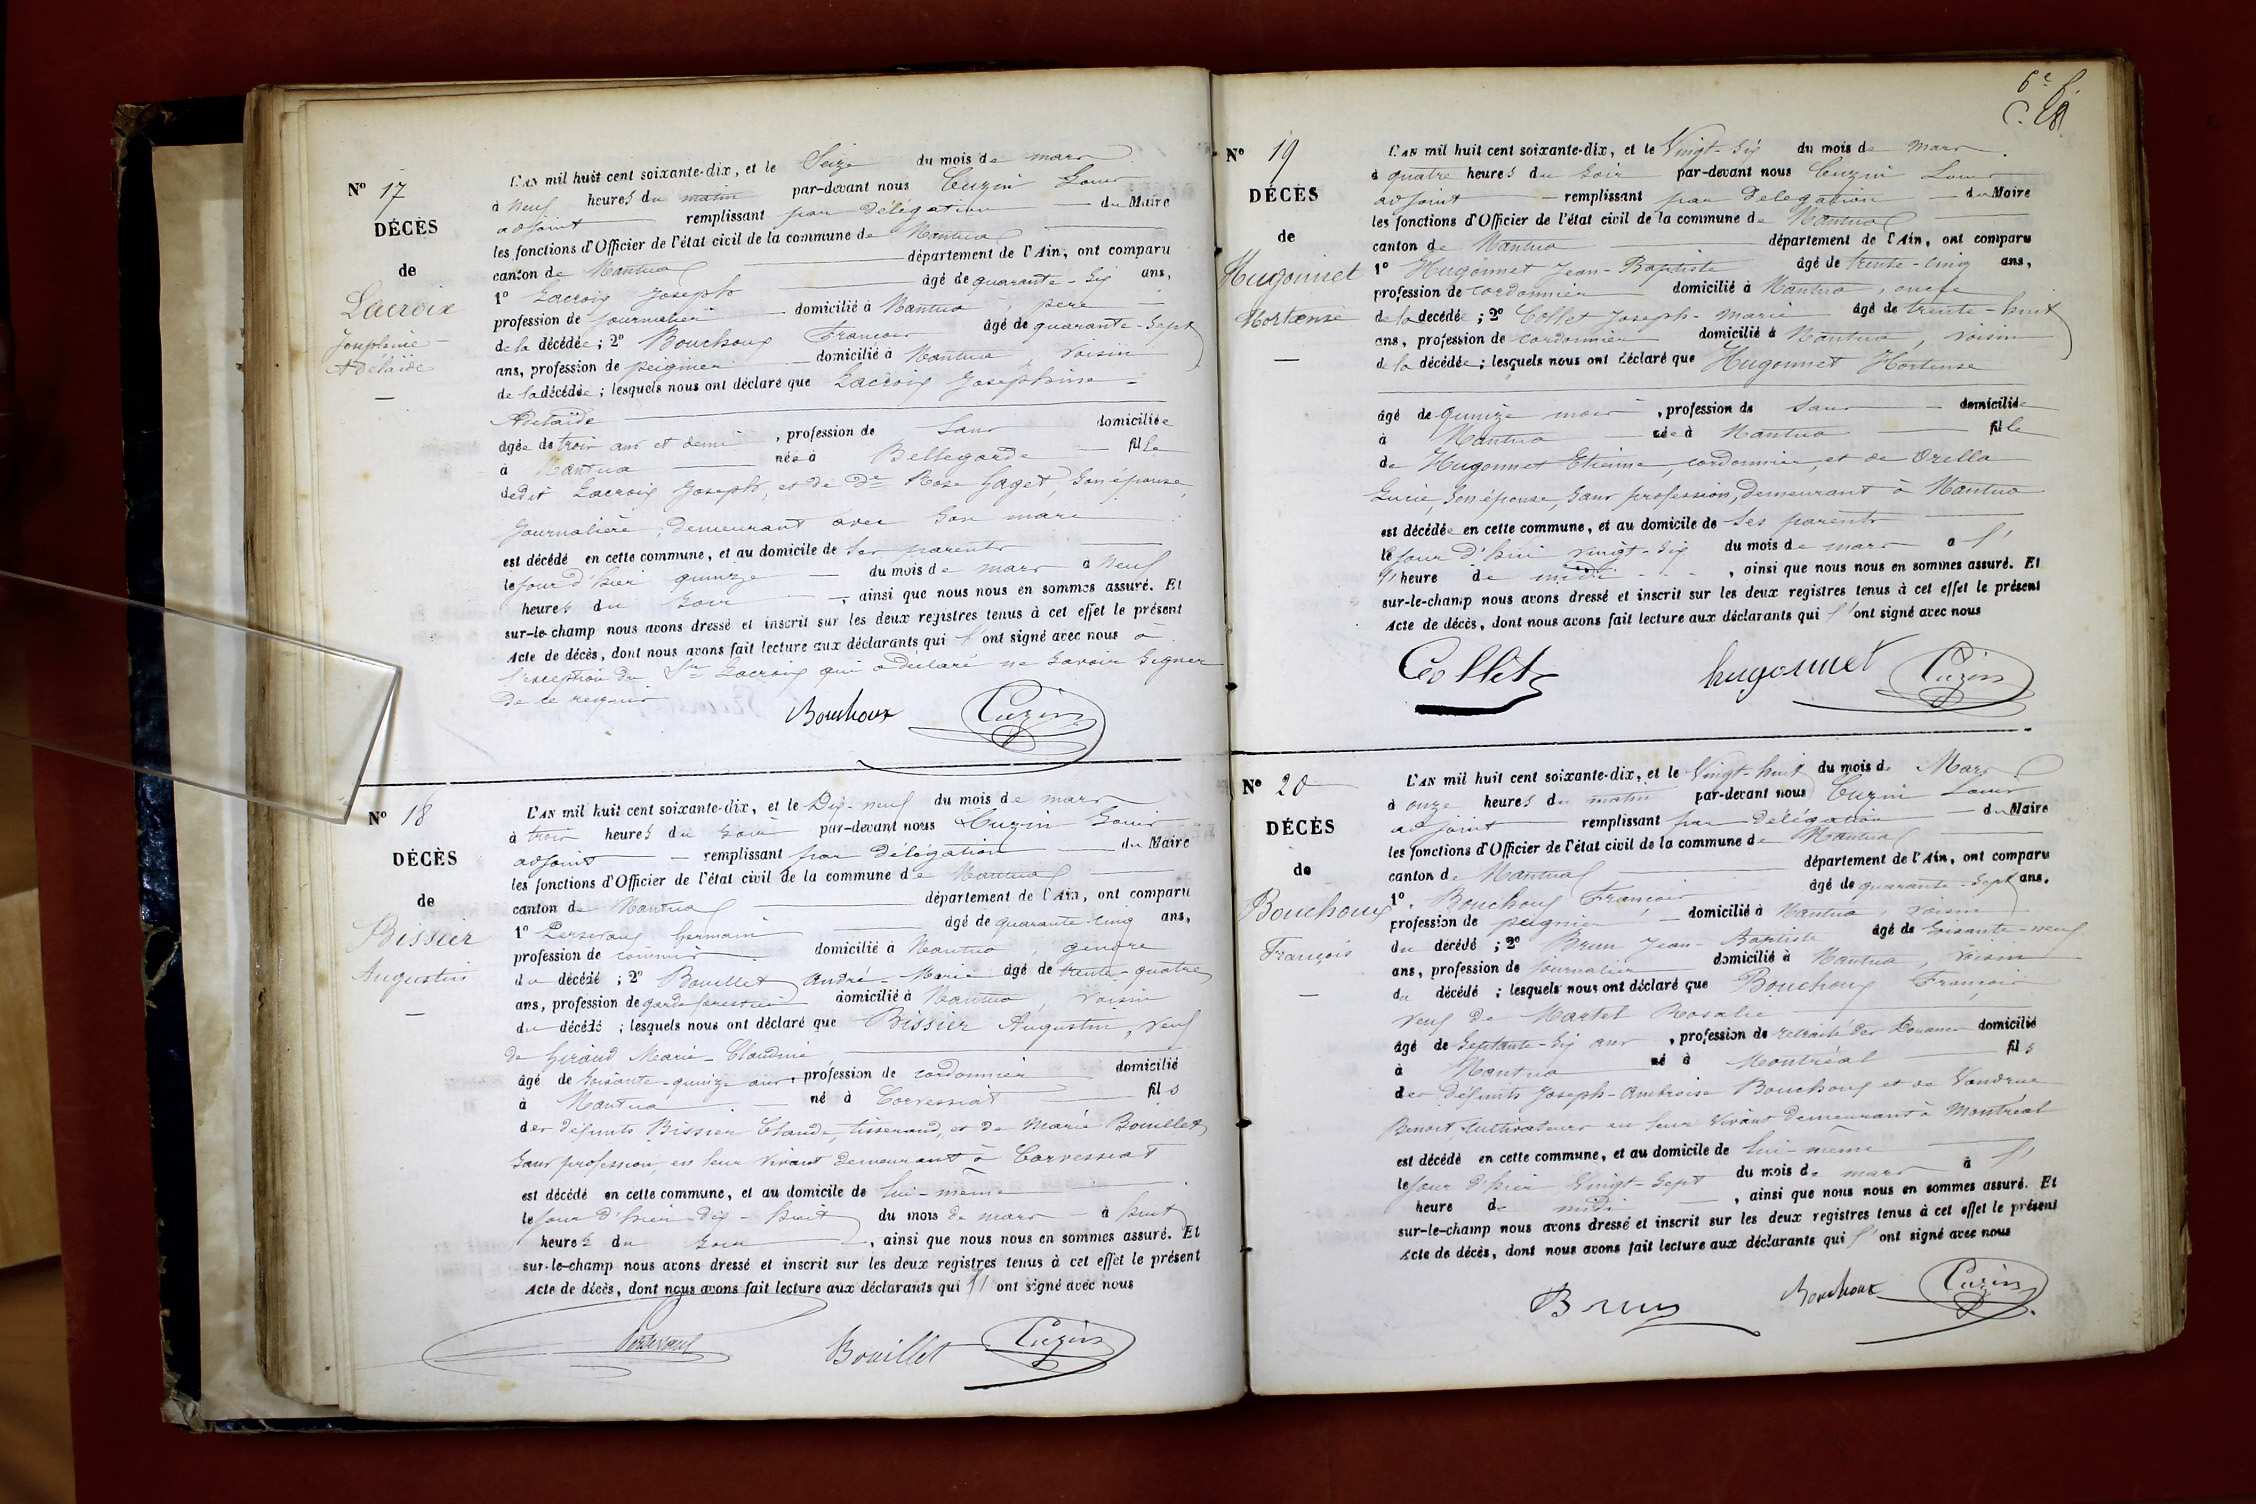 N° 17
DÉCÈS
de
Lacroix
Joséphine-
Adélaïde
L'AN mil huit cent soixante-dix, et le Seize du mois de mars
à neuf heures du matin par-devant nous Cuzin Louis
adjoint remplissant par délégation du Maire
les fonctions d'Officier de l'état civil de la commune de Nantua
canton de Nantua département de l'Ain, ont comparu
1° Lacroix Joseph âgé de quarante-six ans,
profession de journalier domicilié à Nantua, père
de la décédée ; 2° Bouchoux François âgé de quarante-sept
ans, profession de peignier domicilié à Nantua voisin
de la décédée ; lesquels nous ont déclaré que Lacroix Joséphine-
Adélaïde
âgée de trois ans et demi, profession de sans domiciliée
à Nantua née à Bellegarde fille
dedit Lacroix Joseph, et de De Rose Gaget, son épouse,
journalière, demeurant avec son mari
est décédé en cette commune, et au domicile de ses parents
le jour d'hier quinze du mois de mars à neuf
heures du soir, ainsi que nous nous en sommes assuré. Et
sur-le-champ nous avons dressé et inscrit sur les deux registres tenus à cet effet le présent
Acte de décès, dont nous avons fait lecture aux déclarants qui ont signé avec nous à
l'exception du Sr Lacroix qui a déclaré ne savoir signer
de ce requis
Bouchoux Cuzin
N° 18
DÉCÈS
de
Bissier
Augustin
L'AN mil huit cent soixante-dix, et le Dix-neuf du mois de mars
à trois heures du soir par-devant nous Cuzin Louis
adjoint remplissant par délégation du Maire
les fonctions d'Officier de l'état civil de la commune de Nantua
canton de Nantua département de l'Ain, ont comparu
1° Germain âgé de quarante cinq ans,
profession de domicilié à Nantua, gendre
du décédé ; 2° Bouillet André-Marie âgé de trente-quatre
ans, profession de garde forestier domicilié à Nantua, voisin
du décédé ; lesquels nous ont déclaré que Bissier Augustin, veuf
de Giraud Marie-Claudine
âgé de soixante-quinze ans, profession de cordonnier domicilié
à Nantua né à Corvessiat fils
des défunts Bissier Claude, tisserand, et de Marie Bouillet,
sans profession, en leur vivant demeurant à Corvessiat
est décédé en cette commune, et au domicile de lui-même
le jour d'hier dix-huit du mois de mars à huit
heures du soir, ainsi que nous nous en sommes assuré. Et
sur-le-champ nous avons dressé et inscrit sur les deux registres tenus à cet effet le présent
Acte de décès, dont nous avons fait lecture aux déclarants qui ont signé avec nous
Bouillet Cuzin
6e f.
N° 19
DÉCÈS
de
Hugonnet
Hortense
L'AN mil huit cent soixante-dix, et le Vingt-six du mois de mars
à quatre heures du soir par-devant nous Cuzin Louis
adjoint remplissant par délégation du Maire
les fonctions d'Officier de l'état civil de la commune de Nantua
canton de Nantua département de l'Ain, ont comparu
1° Hugonnet Jean-Baptiste âgé de trente-cinq ans,
profession de cordonnier domicilié à Nantua, oncle
de la décédée ; 2° Collet Joseph-Marie âgé de trente-huit
ans, profession de cordonnier domicilié à Nantua, voisin
de la décédée ; lesquels nous ont déclaré que Hugonnet Hortense
âgé de quinze mois, profession de sans domiciliée
à Nantua née à Nantua fille
de Hugonnet Etienne, cordonnier, et de Orella
Lucie, son épouse, sans profession, demeurant à Nantua
est décédée en cette commune, et au domicile de ses parents
le jour d'hui vingt-six du mois de mars à
heure de midi, ainsi que nous nous en sommes assuré. Et
sur-le-champ nous avons dressé et inscrit sur les deux registres tenus à cet effet le présent
Acte de décès, dont nous avons fait lecture aux déclarants qui ont signé avec nous
Collet hugonnet Cuzin
N° 20
DÉCÈS
de
Bouchoux
François
L'AN mil huit cent soixante-dix, et le Vingt-huit du mois de Mars
à onze heures du matin par-devant nous Cuzin Louis
adjoint remplissant par délégation du Maire
les fonctions d'Officier de l'état civil de la commune de Nantua
canton de Nantua département de l'Ain, ont comparu
1° Bouchoux François âgé de quarante-sept ans,
profession de peignier domicilié à Nantua, voisin
du décédé ; 2° Brun Jean-Baptiste âgé de soixante-neuf
ans, profession de journalier domicilié à Nantua, voisin
du décédé ; lesquels nous ont déclaré que Bouchoux François
veuf de Martel Rosalie
âgé de septante-six ans, profession de retraité des Douanes domicilié
à Nantua né à Montréal fils
des défunts Joseph-Ambroise Bouchoux et de Vandrue
Benoit, cultivateurs en leur vivant demeurant à Montréal
est décédé en cette commune, et au domicile de lui-même
le jour d'hier vingt-sept du mois de mars à
heure de midi, ainsi que nous nous en sommes assuré. Et
sur-le-champ nous avons dressé et inscrit sur les deux registres tenus à cet effet le présent
Acte de décès, dont nous avons fait lecture aux déclarants qui ont signé avec nous
Brun Bouchoux Cuzin